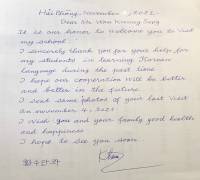 Hải Phòng, November , 2021
Dear Mr. Won
It is our honor to welcome you to visit
my school.
I sincerely thank you for your help for
my students in learning Korean
language during the past time.
I hope our cooperation will be better
and better in the future.
I send some photos of your last visit
on November 4, 2021
I wish you and your family good health
and happiness
I hope to see you soon